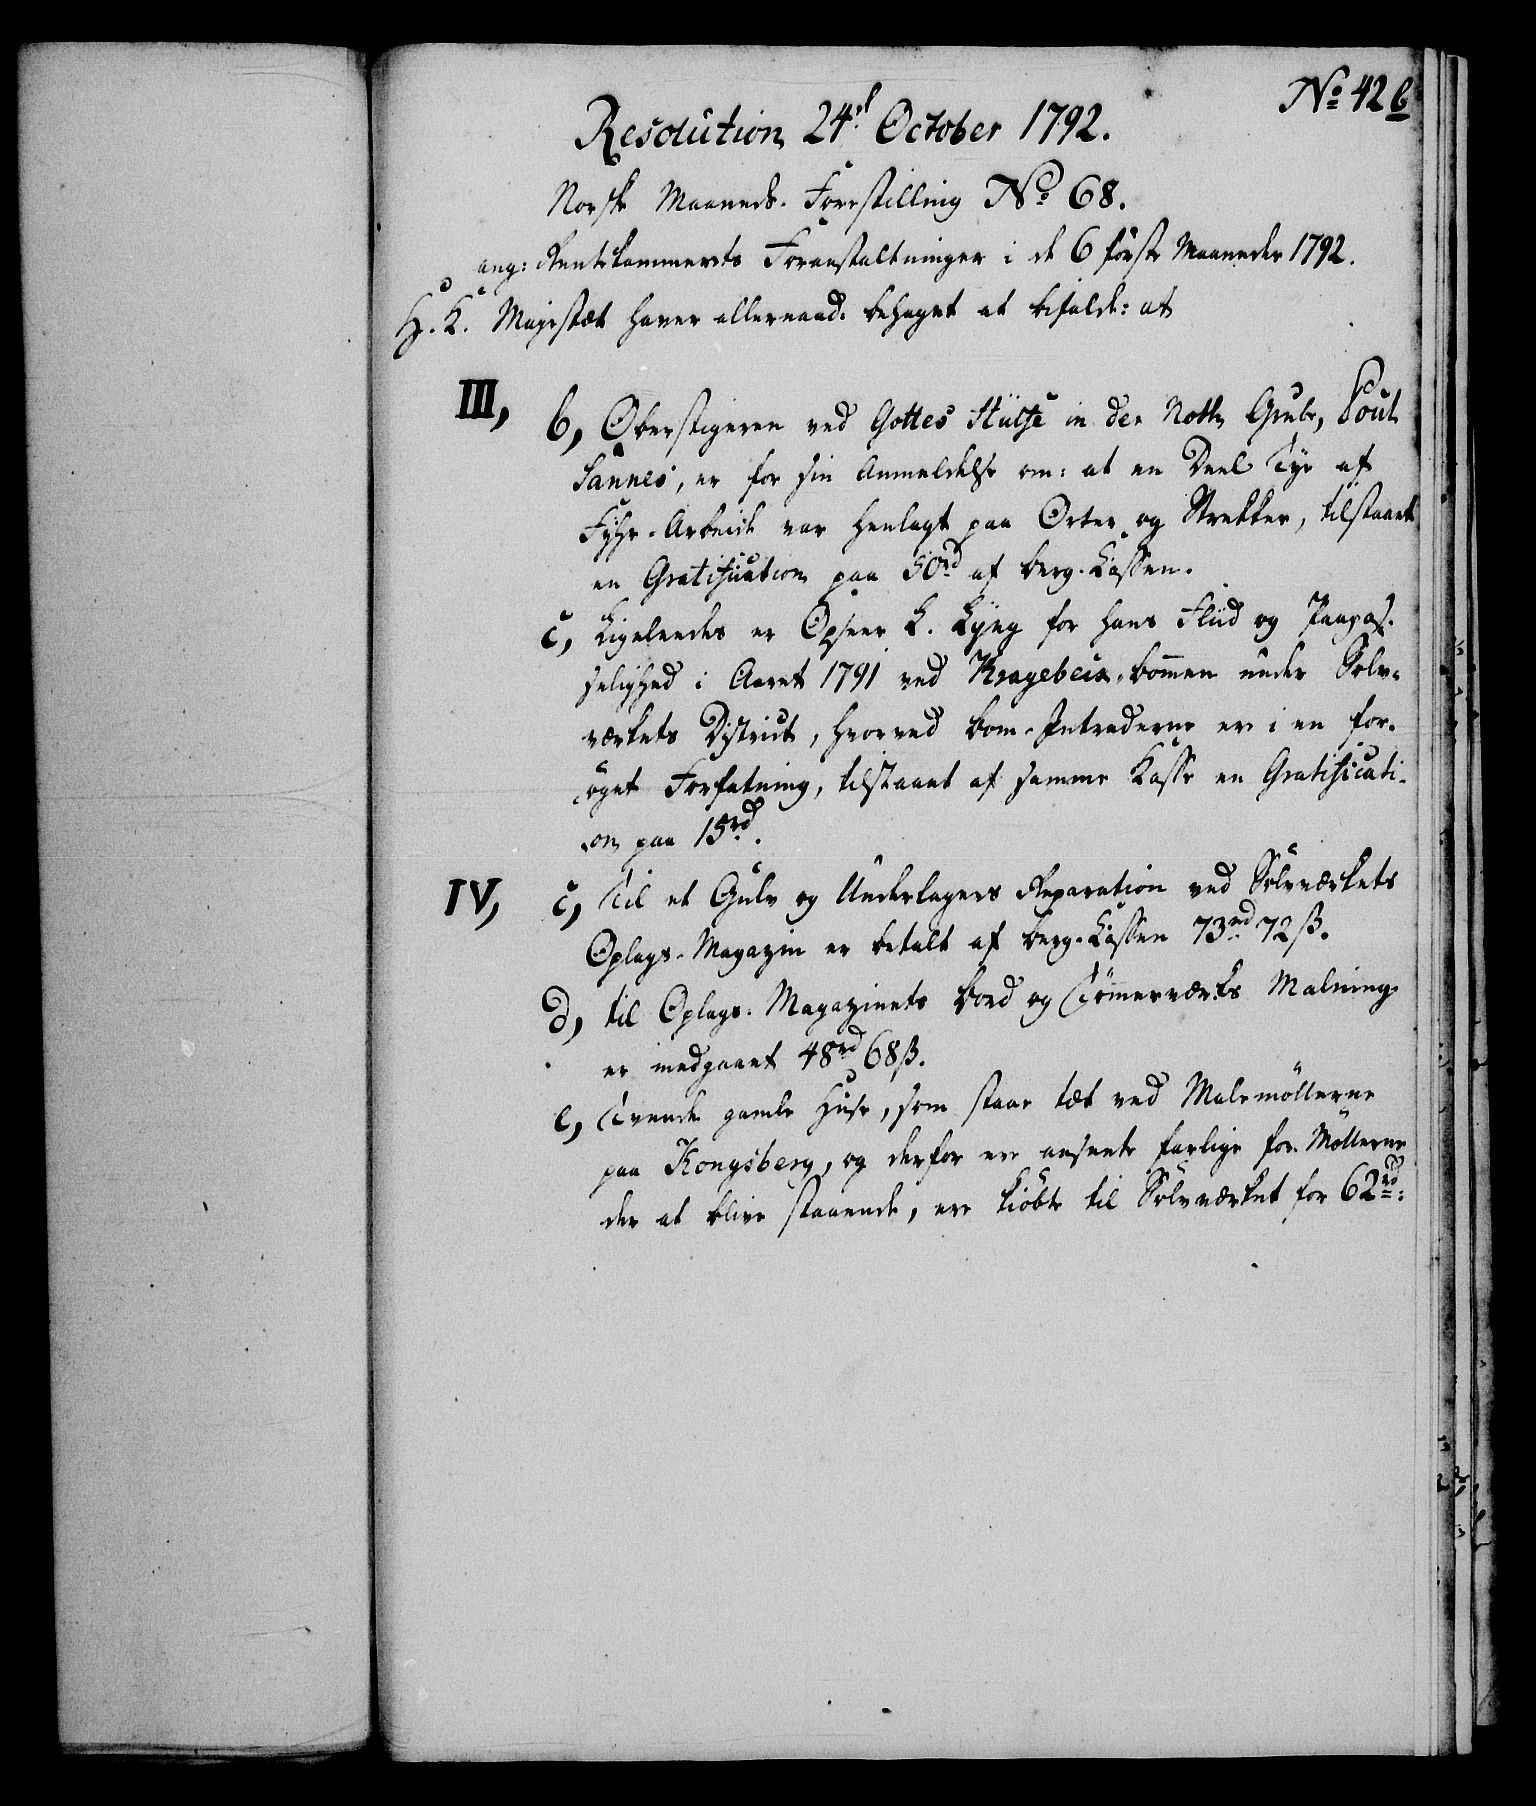 No 42 b
Resolution 24de October 1792.
Norske Maaneds-Forestilling No 68.
ang: Rentekammerets Foranstaltninger i de 6 förste Maaneder 1792.
H. K. Majestæt haver allernaad. behaget at bifalde: at
III, b, Oberstigeren ved Gottes Hülfe in der Noth Grube, Poul
Sannes, er for sin Anmeldelse om: at en Deel Tyr af
Fyhr-Arbeide var henlagt paa Orter og Strekker, tilstaaet
en Gratification paa 50rd af berg-Cassen.
c, Ligeleedes er Opseer L. Lyng for hans Fliid og Paapas-
selighed i Aaret 1791 ved bommen under Sölv-
værkets District, hvorved bom-Intraderne er i en for-
öget Forfatning, tilstaaet af samme Kasse en Gratificati-
on paa 15rd.
IV, c, Til et Gulv og Underlagers Reparation ved Sölvværkets
Oplags-Magazin er betalt af berg-Cassen 73rd 72ß.
d, til Oplags-Magazinets bord og Tömmerværks Malning
er medgaaet 48rd 68ß.
e, Tvende gamle Huse, som staae tæt ved Malemöllerne
paa Kongsberg, og derfor ere ansete farlige for Möllerne
der at blive staaende, ere kiöbte til Sölvværket for 62rd: